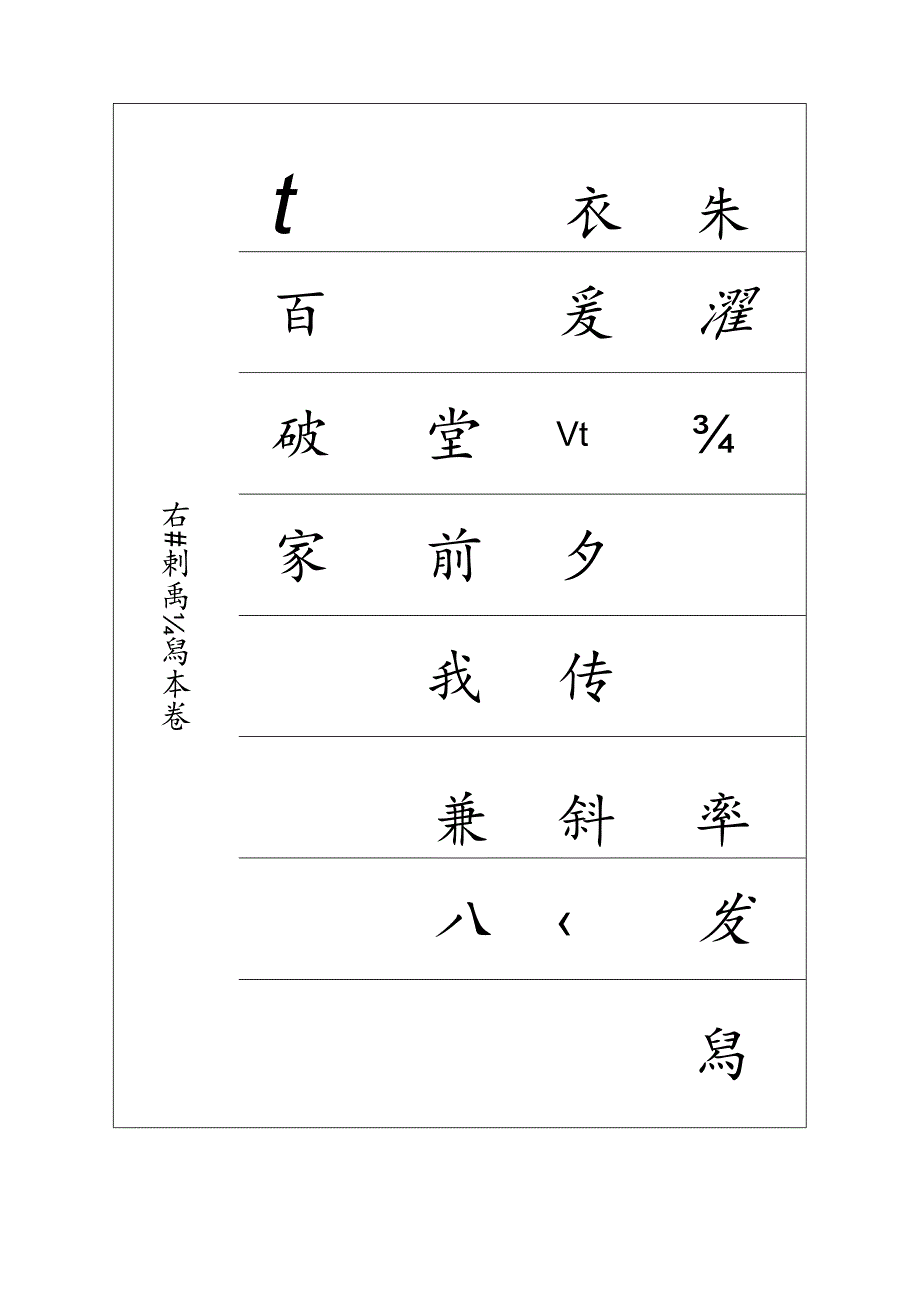 t 衣 朱
百 爰 濯
破 堂 Vt ¾
家 前 夕
我 传
兼 斜 率
八 ‹ 发
舄
右#剌禹¼舄本卷